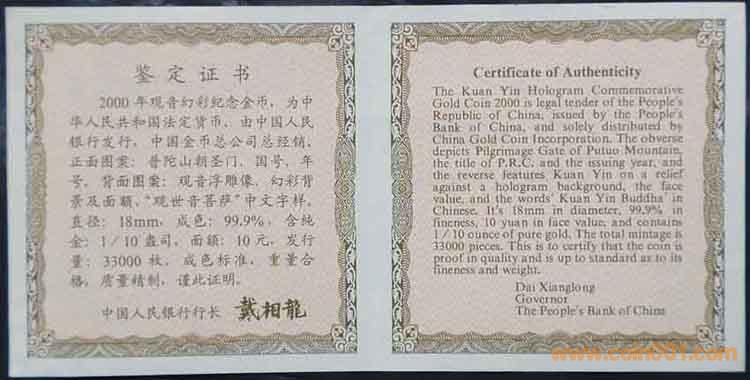 鉴定证书
2000年观音幻彩纪念金币，为中
华人民共和国法定货币，由中国人民
银行发行，中国金币总公司总经销。
正面图案：普陀山朝圣门、国号、年
号。背面图案：观音浮雕像，幻彩背
景及面额、“观世音菩萨”中文字样。
直径：18mm，成色：99.9%，含纯
金：1/10盎司，面额：10元，发行
量：33000枚。成色标准，重量合
格，质量精制，谨此证明。
中国人民银行行长 戴相龍
Certificate of Authenticity
The Kuan Yin Hologram Commemorative
Gold Coin 2000 is legal tender of the People's
Republic of China, issued by the People's
Bank of China, and solely distributed by
China Gold Coin Incorporation. The obverse
depicts Pilgrimage Gate of Putuo Mountain,
the title of P.R.C. and the issuing year, and
the reverse features Kuan Yin on a relief
against a hologram background, the face
value, and the words' Kuan Yin Buddha' in
Chinese. It's 18mm in diameter, 99.9% in
fineness, 10 yuan in face value, and contains
1/10 ounce of pure gold. The total mintage is
33000 pieces. This is to certify that the coin is
proof in quality and is up to standard as to its
fineness and weight.
Dai Xianglong
Governor
The People's Bank of China
www.coin001.com